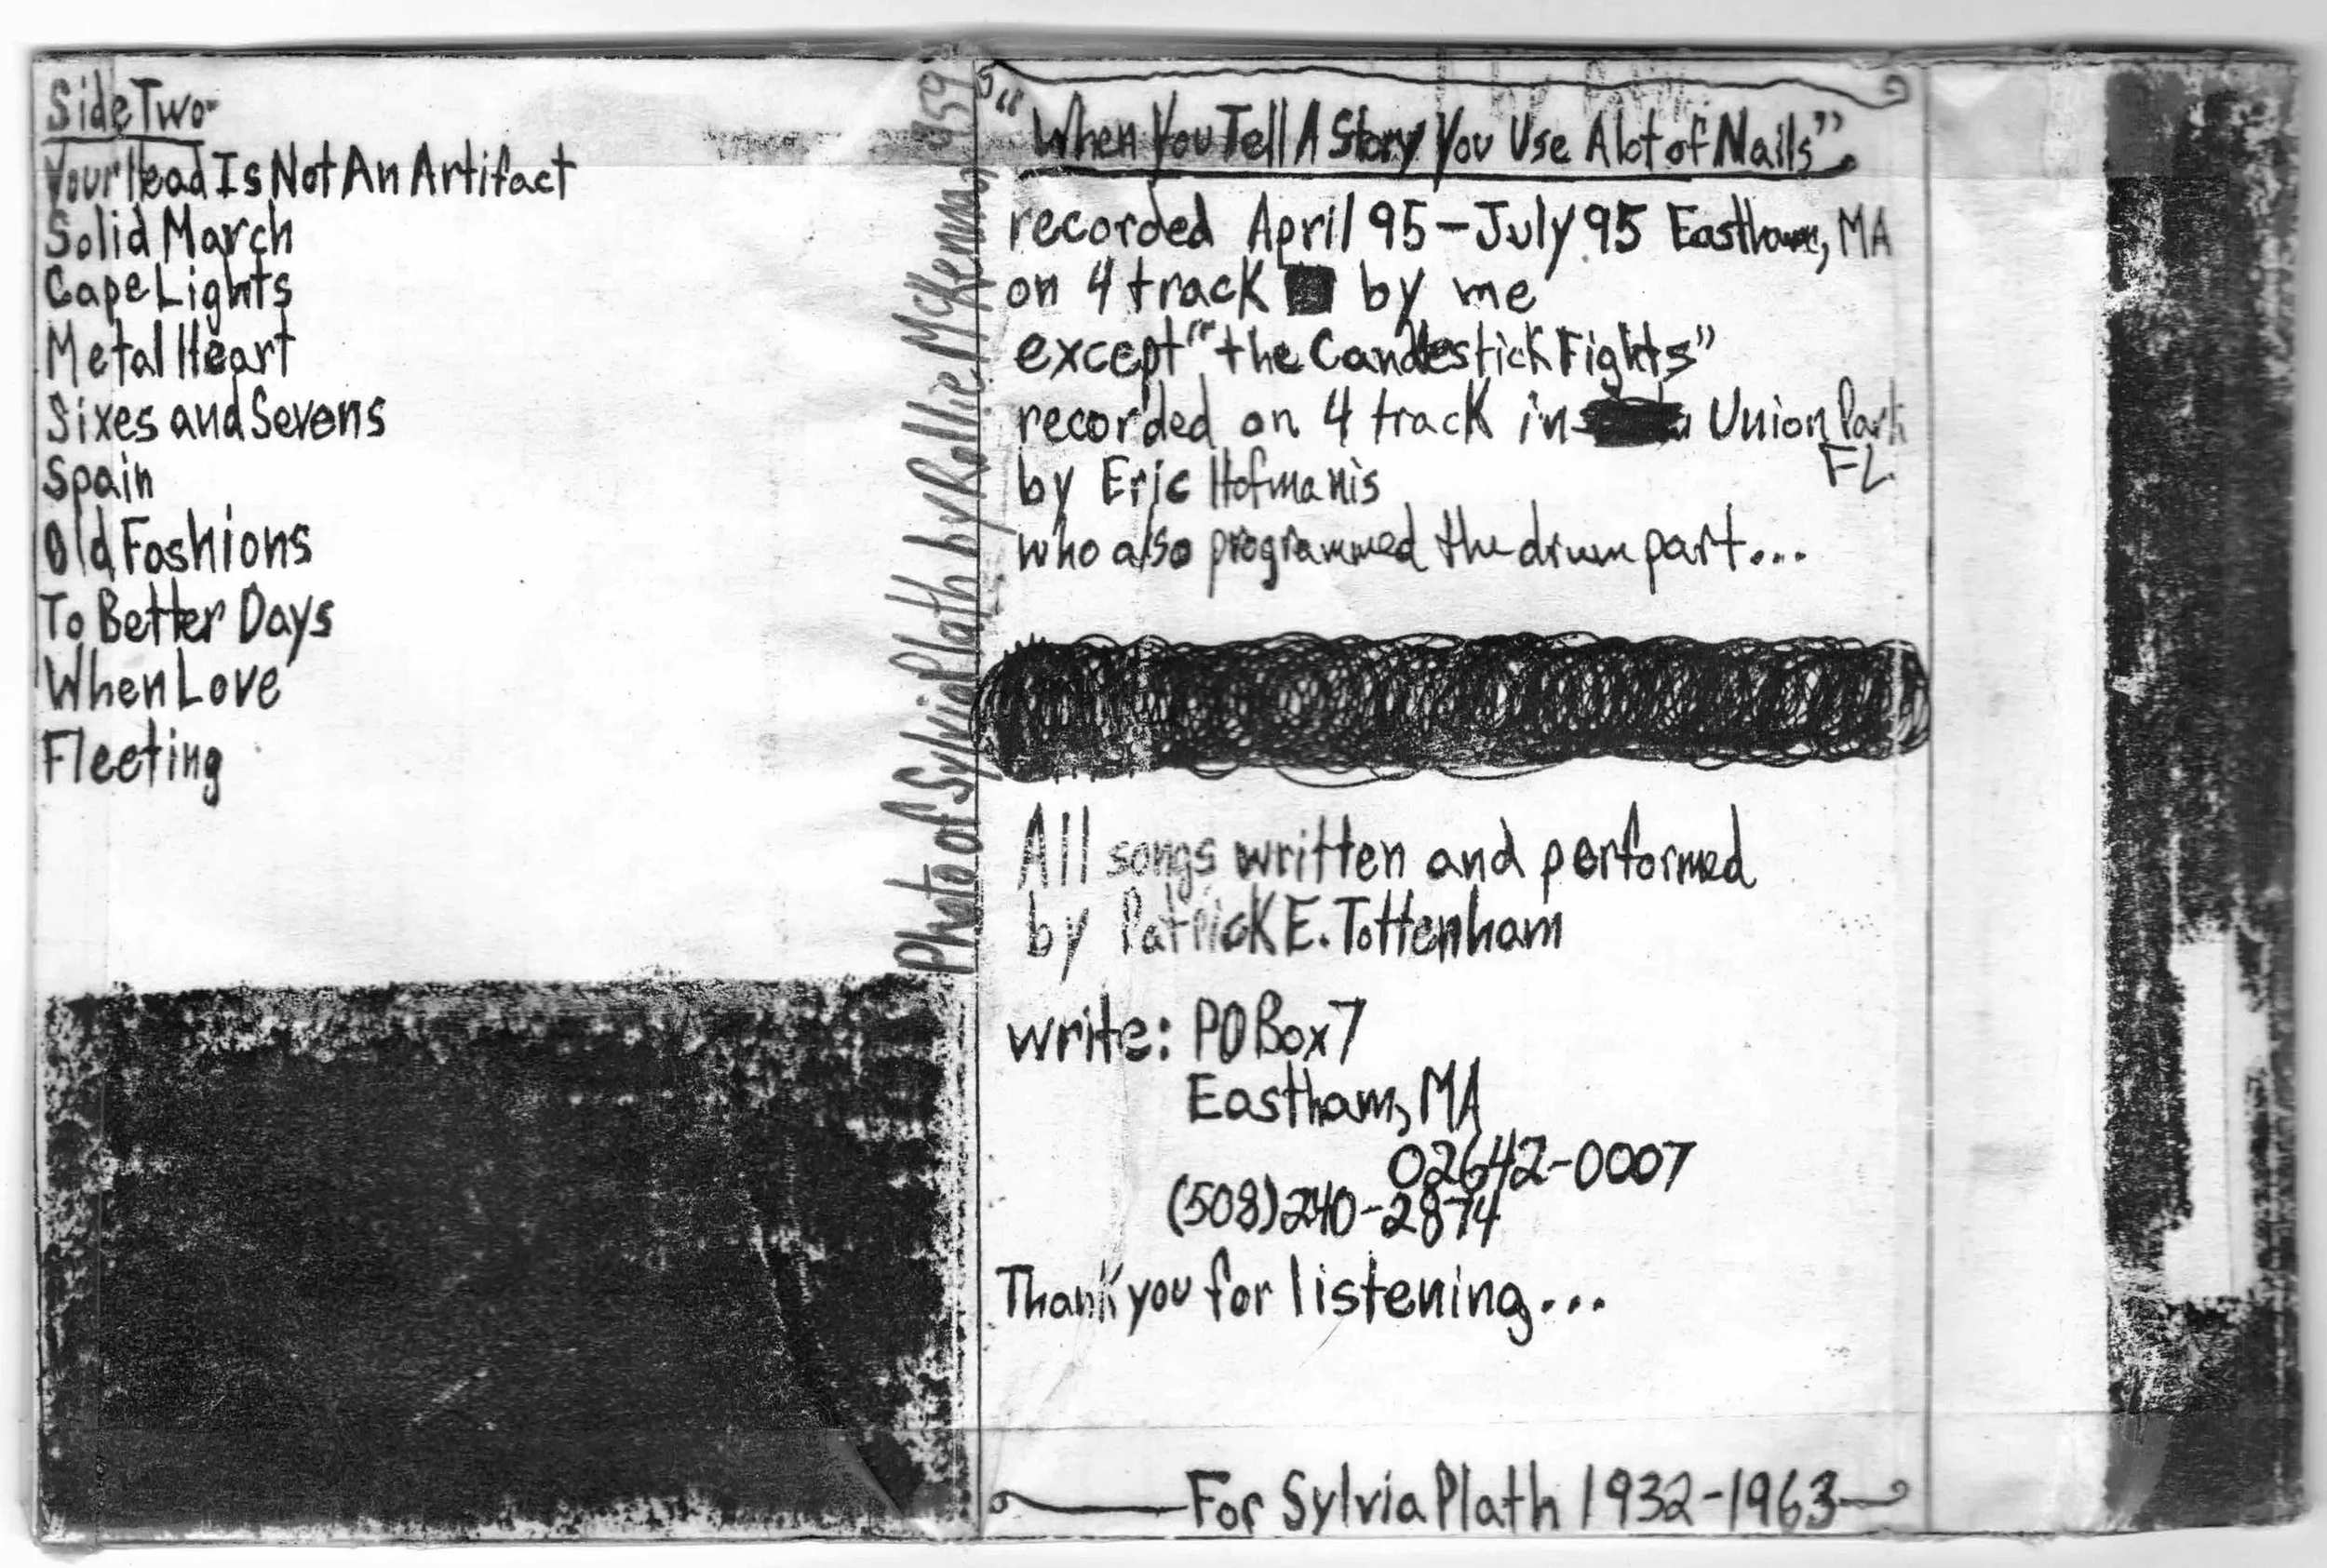 Side Two
Your Head Is Not An Artifact
Solid March
Cape Lights
Metal Heart
Sixes and Sevens
Spain
Old Fashions
To Better Days
When Love
Fleeting
Photo of Sylvia Plath by Rollie McKenna, 1959
"When You Tell A Story You Use Alot of Nails"
recorded April 95-July 95 Eastham, MA
on 4 track by me
except "the Candlestick Fights"
recorded on 4 track in Union Park
FL
by Eric Hofmanis
who also programmed the drum part...
All songs written and performed
by Patrick E. Tottenham
write: PO Box 7
Eastham, MA
02642-0007
(508)240-2874
Thank you for listening...
For Sylvia Plath 1932-1963